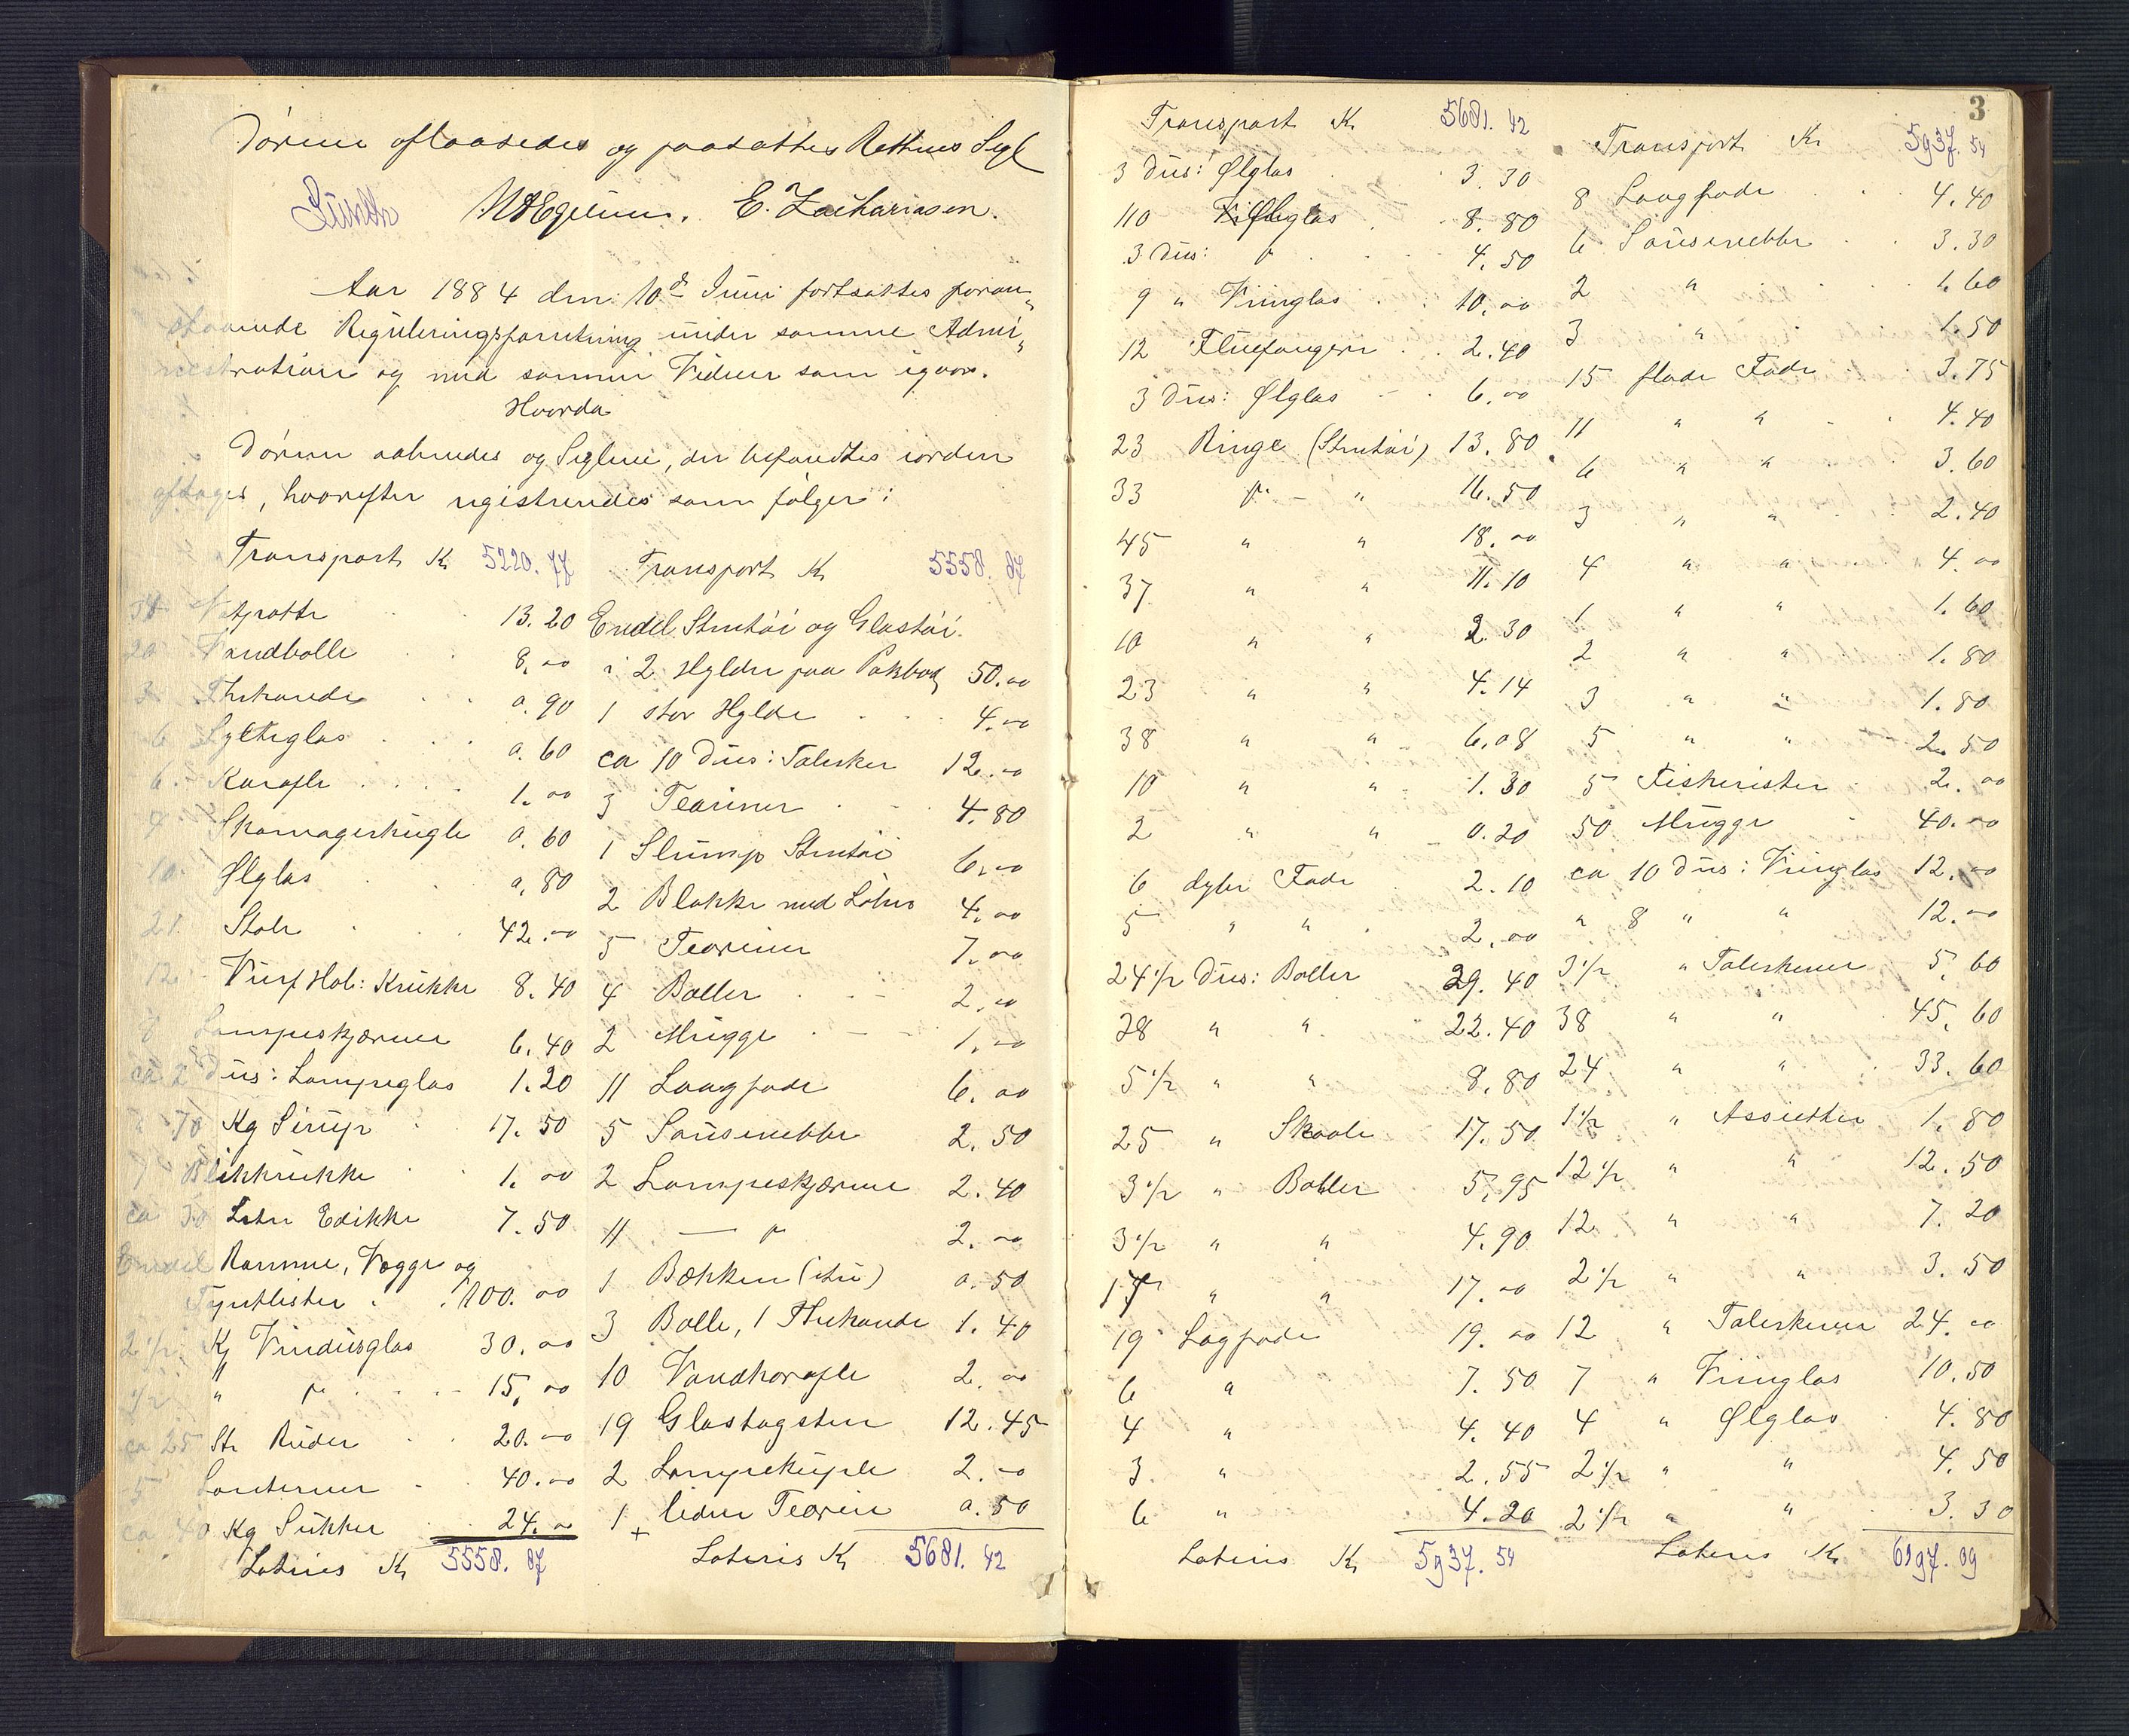 Dørene aflaasedes og paasattes Rettens Segl
E. Zachariasen.
Aar 1884 den 10de Juni fortsattes foran„
staaende Reguleringsforretning under samme Admi„
nistration og med samme Vidner som igaar.
Hvorda
Dørene aabnedes og Seglene, der befandtes iorden
aftoges, hvorefter registreredes som følger:
Transport Kr 5220.77
Natpotte 13.20
20 Vandbolle 8.00
3 Thekande 0.90
6 Sylteglas 0.60
6 Karafle 1.00
Skomagerkugle 0.60
10 Ølglas 0,80
21 Stole 42.00
12 Hol: Krukke 8.40
Lampeskjærme 6.40
ca 2 Dus: Lampeglas 1.20
70 Kg Sirup 17.50
7 Blikkrukke 1.00
ca 30 Liter Edikke 7.50
Endel Ramme, Vægge og
Gyntlister 100.00
2 1/2 Kj Vinduesglas 30.00
1/2 " " 15,00
ca 25 St Ruder 20.00
5 Lanterner 40.00
ca 40 Kg Sukker 24.00
Lateris Kr 5558.87
Transport Kr 5558.87
Endel Stentøi og Glastøi
i 2 Hylder paa Pakbod 50.00
1 stor Hylde 4.00
ca 10 Dus: Talerker 12.00
3 Teariner 4.80
1 Slump Stentøi 6.00
2 Blakke med 4.00
5 Teariner 7.00
4 Boller 2.00
2 Mugge 1.00
11 Laagfade 6.00
5 Sausenebbe 2.50
2 Lampeskjærme 2.40
11 — " 2.00
1 Bækken (itu) 0.50
3 Bolle, 1 Thekande 1.40
10 Vandkarafle 2.00
19 Glastagsten 12.45
2 Lampekuple 2.00
1 liden Tearin 0.50
Lateris Kr 5681.42
3
Transport Kr 5681.42
3 Dus: Ølglas 3.30
110 Ølglas 8.80
3 Dus: " 4.50
9 " Vinglas 10.00
12 Fluefangere 2.40
3 Dus: Ølglas 6.00
23 Ringe (Stentøi) 13.80
33 " - " 16.50
45 " " 18.00
37 " " 11.10
10 " " 2.30
23 " " 4.14
38 " " 6.08
10 " " 1.30
2 " " 0.20
6 dybe Fade 2.10
5 " " 2.00
24 1/2 Dus: Boller 29.40
28 " " 22.40
5 1/2 " " 8.80
25 " Skaale 17.50
3 1/2 " Boller 5.95
3 1/2 " " 4.90
17 " " 17.00
19 Lagfade 19.00
6 " 7.50
4 " 4.40
3 " 2.55
6 " 4.20
Lateris Kr 5937.54
Transport Kr 5937.54
8 Laagfade 4.40
6 Sausenebbe 3.30
2 " 1.60
3 " 1.50
15 flade Fade 3.75
11 " " 4.40
6 " " 3.60
3 " " 2.40
4 " " 4.00
1 " " 1.60
2 " " 1.80
3 " " 1.80
5 " " 2.50
5 Fiskerister 2.00
50 Mugge 40.00
ca 10 Dus: Vinglas 12.00
" 8 " " 12.00
3 1/2 " Talerkener 5,60
38 " " 45,60
24 " " 33.60
1 1/2 " Assietter 1.80
12 1/2 " " 12.50
12 " " 7.20
2 1/2 " " 3.50
12 " Talerkener 24.00
7 " Vinglas 10.50
4 " Ølglas 4.80
2 1/2 " " 4.50
2 1/2 " " 3.30
Lateris Kr 6197.09